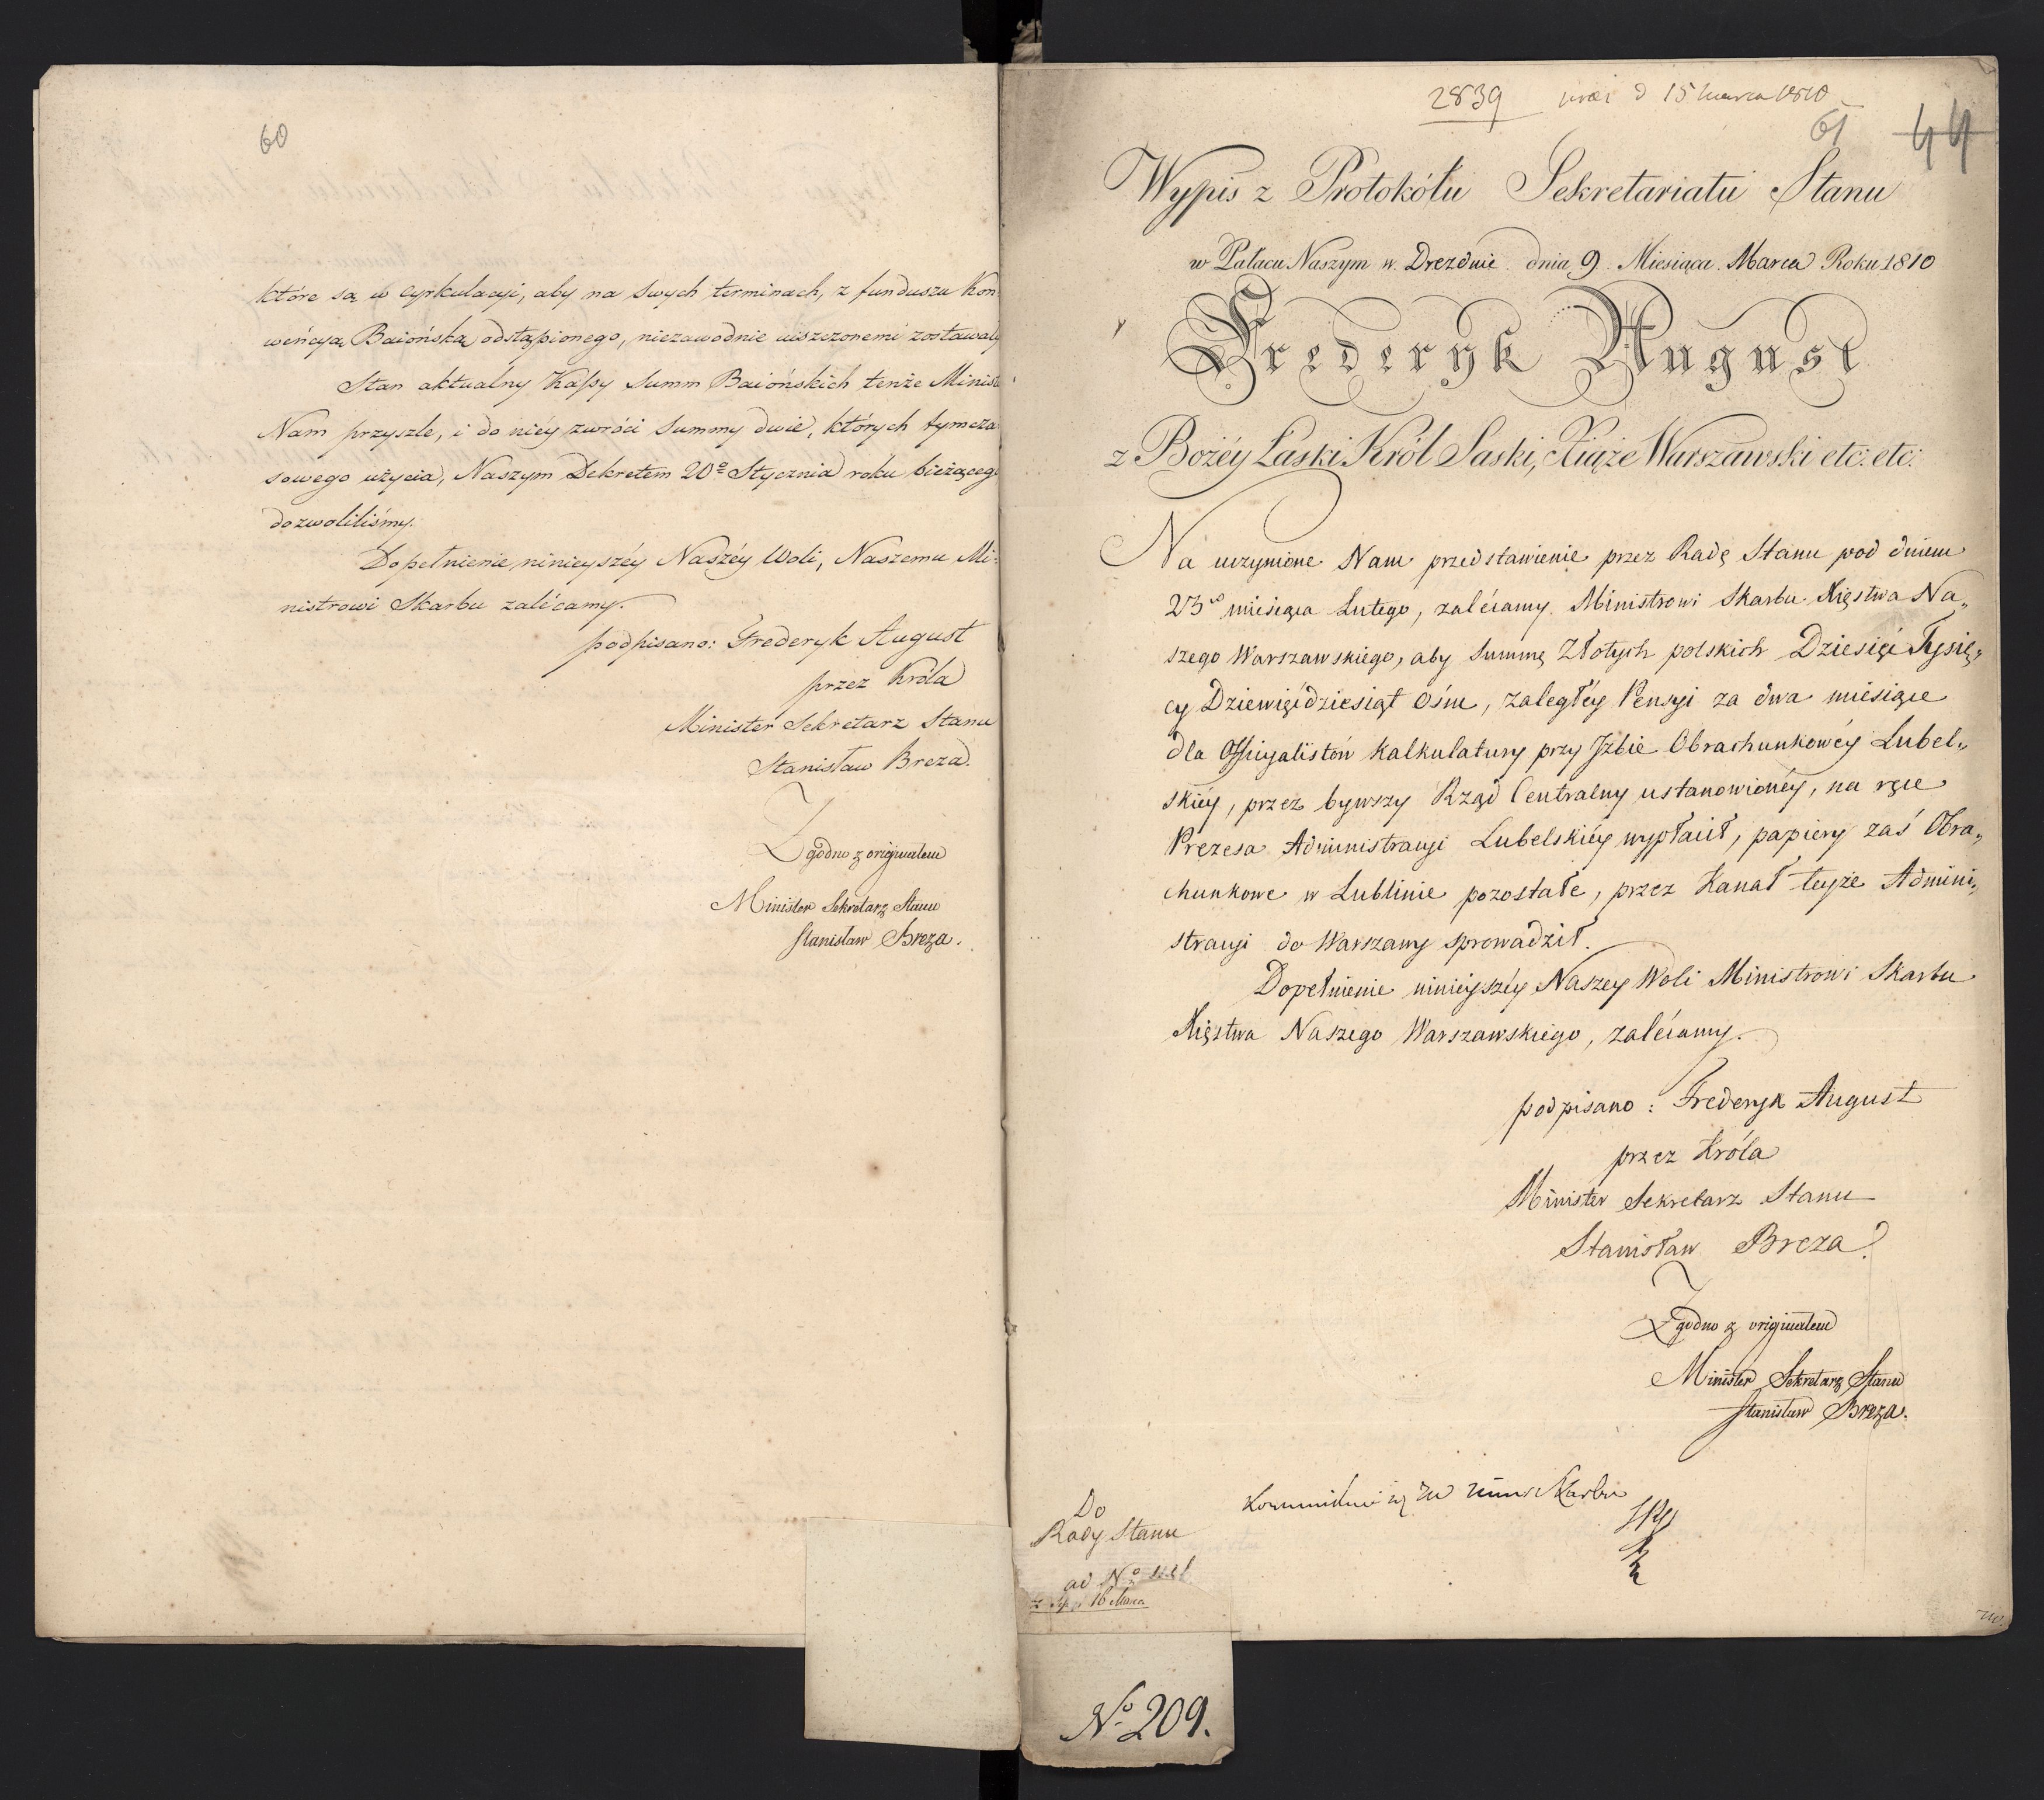 60
które są w cyrkulacyi, aby na swych terminach, z funduszu Kon
wencyą Baiońską odstąpionego, niezawodnie uiszczonemi zostawały
Stan aktualny Kassy Summ Baiońskich tenże Minist
Nam przyszle, i do niéy zwróci Summy dwie, których tymcza
sowego użycia, Naszym Dekretem 20º Stycznia roku bieżącego
dozwoliliśmy.
Dopełnienie ninieyszéy Naszéy Woli, Naszemu Mi-
nistrowi Skarbu zalécamy.
podpisano: Frederyk August
przez Króla
Minister Sekretarz Stanu
Stanisław Breza.
Zgodno z originałem
Minister Sekretarz Stanu
Stanisław Breza.
2839 d 15 Marca 1810
61 44
Wypis z Protokółu Sekretariatu Stanu
w Pałacu Naszym w Dreznie dnia 9 Miesiąca Marca Roku 1810
Frederyk August
z Bożéy Łaski Król Saski, Xiąże Warszawski etc: etc:
Na uczynione Nam przedstawienie przez Radę Stanu pod dniem
23º miesiąca Lutego, zalécamy Ministrowi Skarbu Xięstwa Na„
szego Warszawskiego, aby Summę Złotych polskich Dziesięć Tysię„
cy Dziewięćdziesiąt Ośm, zaległéy Pensyi za dwa miesiące
dla Officyalistów Kalkulatury przy Izbie Obrachunkowéy Lubel„
skiéy, przez bywszy Rząd Centralny ustanowionéy, na ręce
Prezesa Administracyi Lubelskiéy wypłacił, papiery zaś Obra„
chunkowe w Lublinie pozostałe, przez Kanał teyże Admini„
stracyi do Warszawy sprowadził.
Dopełnienie ninieyszéy Naszey Woli Ministrowi Skarbu
Xięstwa Naszego Warszawskiego, zalécamy.
podpisano: Frederyk August
przez Króla
Minister Sekretarz Stanu
Stanisław Breza.
Zgodno z originałem
Minister Sekretarz Stanu
Stanisław Breza.
Do
Rady Stanu
ad Nº
16 Marca
Skarbu
Nº 209.